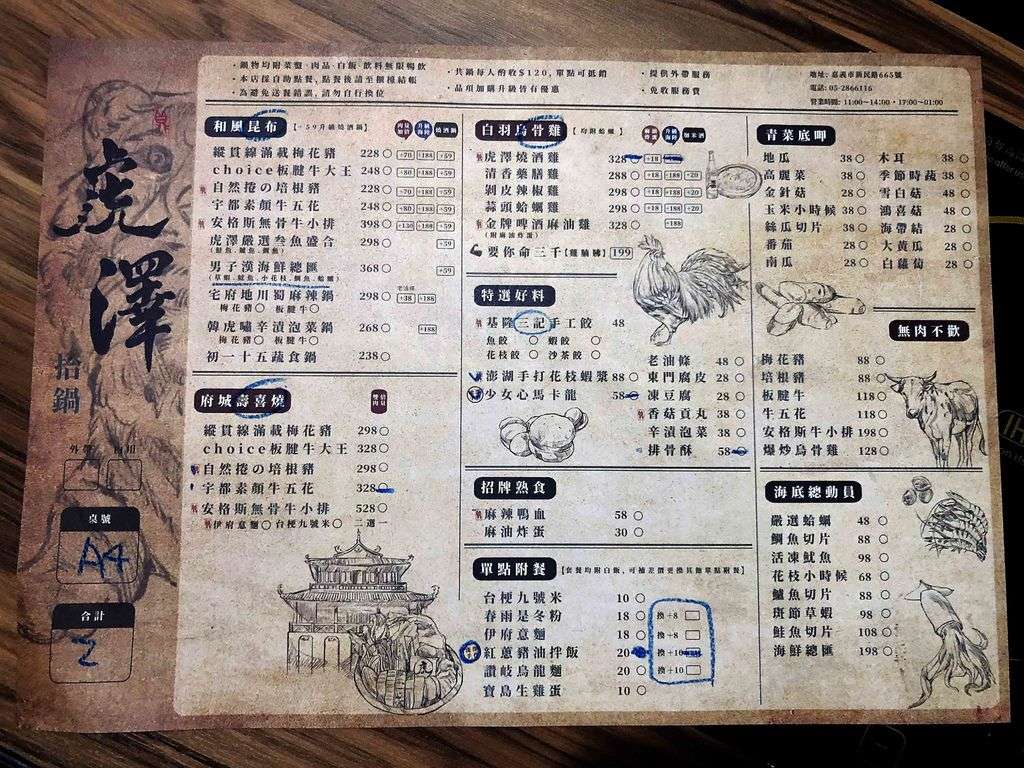 ·鍋物均附菜盤·肉品·白飯·飲料無限暢飲
·本店採自助點餐,點餐後請至櫃檯結帳
·為避免送餐錯誤,請勿自行換位
·共鍋每人酌收$120,單點可抵銷
·品項加購升級皆有優惠
·提供外帶服務
·免收服務費
地址: 嘉義市新民路665號
電話: 05-2866116
營業時間: 11:00~14:00·17:00~01:00
虎澤
拾鍋
外帶 內用
桌號
A4
合計
2
和風昆布 【+59升級燒酒鍋】
肉量加倍 升級海陸 燒酒鍋
縱貫線滿載梅花豬 228 +70 +188 +59
choice板腱牛大王 248 +80 +188 +59
自然捲の培根豬 228 +70 +188 +59
宇都素顏牛五花 248 +80 +188 +59
安格斯無骨牛小排 398 +130 +188 +59
虎澤嚴選叁魚盛合 298 +59
男子漢海鮮總匯 368 +59
宅府地川蜀麻辣鍋 298 +38 +188
梅花豬 板腱牛
韓虎嘯辛漬泡菜鍋 268 +188
梅花豬 板腱牛
初一十五蔬食鍋 238
府城壽喜燒
雙倍肉量
縱貫線滿載梅花豬 298
choice板腱牛大王 328
自然捲の培根豬 298
宇都素顏牛五花 328
安格斯無骨牛小排 528
伊府意麵 台梗九號米 二選一
白羽烏骨雞 【均附蛤蠣】
麻油炸蛋 升級海陸 加米酒
虎澤燒酒雞 328 +18 +188
清香藥膳雞 288 +18 +188 +20
剝皮辣椒雞 298 +18 +188 +20
蒜頭蛤蠣雞 298 +18 +188 +20
金牌啤酒麻油雞 328 +188
(附麻油炸蛋)
要你命三千【雞腩腓】 199
特選好料
基隆三記手工餃 48
魚餃 蝦餃
花枝餃 沙茶餃
澎湖手打花枝蝦漿 88
少女心馬卡龍 58
老油條 48
東門腐皮 28
凍豆腐 28
香菇貢丸 38
辛漬泡菜 38
排骨酥 58
招牌熟食
麻辣鴨血 58
麻油炸蛋 30
單點附餐 【套餐均附白飯,可補差價更換其餘單點附餐】
台梗九號米 10
春雨是冬粉 18 換+8
伊府意麵 18 換+8
紅蔥豬油拌飯 20 換+10
讚岐烏龍麵 20 換+10
寶島生雞蛋 10
青菜底呷
地瓜 38 木耳 38
高麗菜 38 季節時蔬 38
金針菇 28 雪白菇 48
玉米小時候 38 鴻喜菇 48
絲瓜切片 38 海帶結 28
番茄 28 大黃瓜 28
南瓜 28 白蘿蔔 28
無肉不歡
梅花豬 88
培根豬 88
板腱牛 118
牛五花 118
安格斯牛小排 198
爆炒烏骨雞 128
海底總動員
嚴選蛤蠣 48
鯛魚切片 88
活凍魷魚 98
花枝小時候 68
鱸魚切片 88
斑節草蝦 98
鮭魚切片 108
海鮮總匯 198